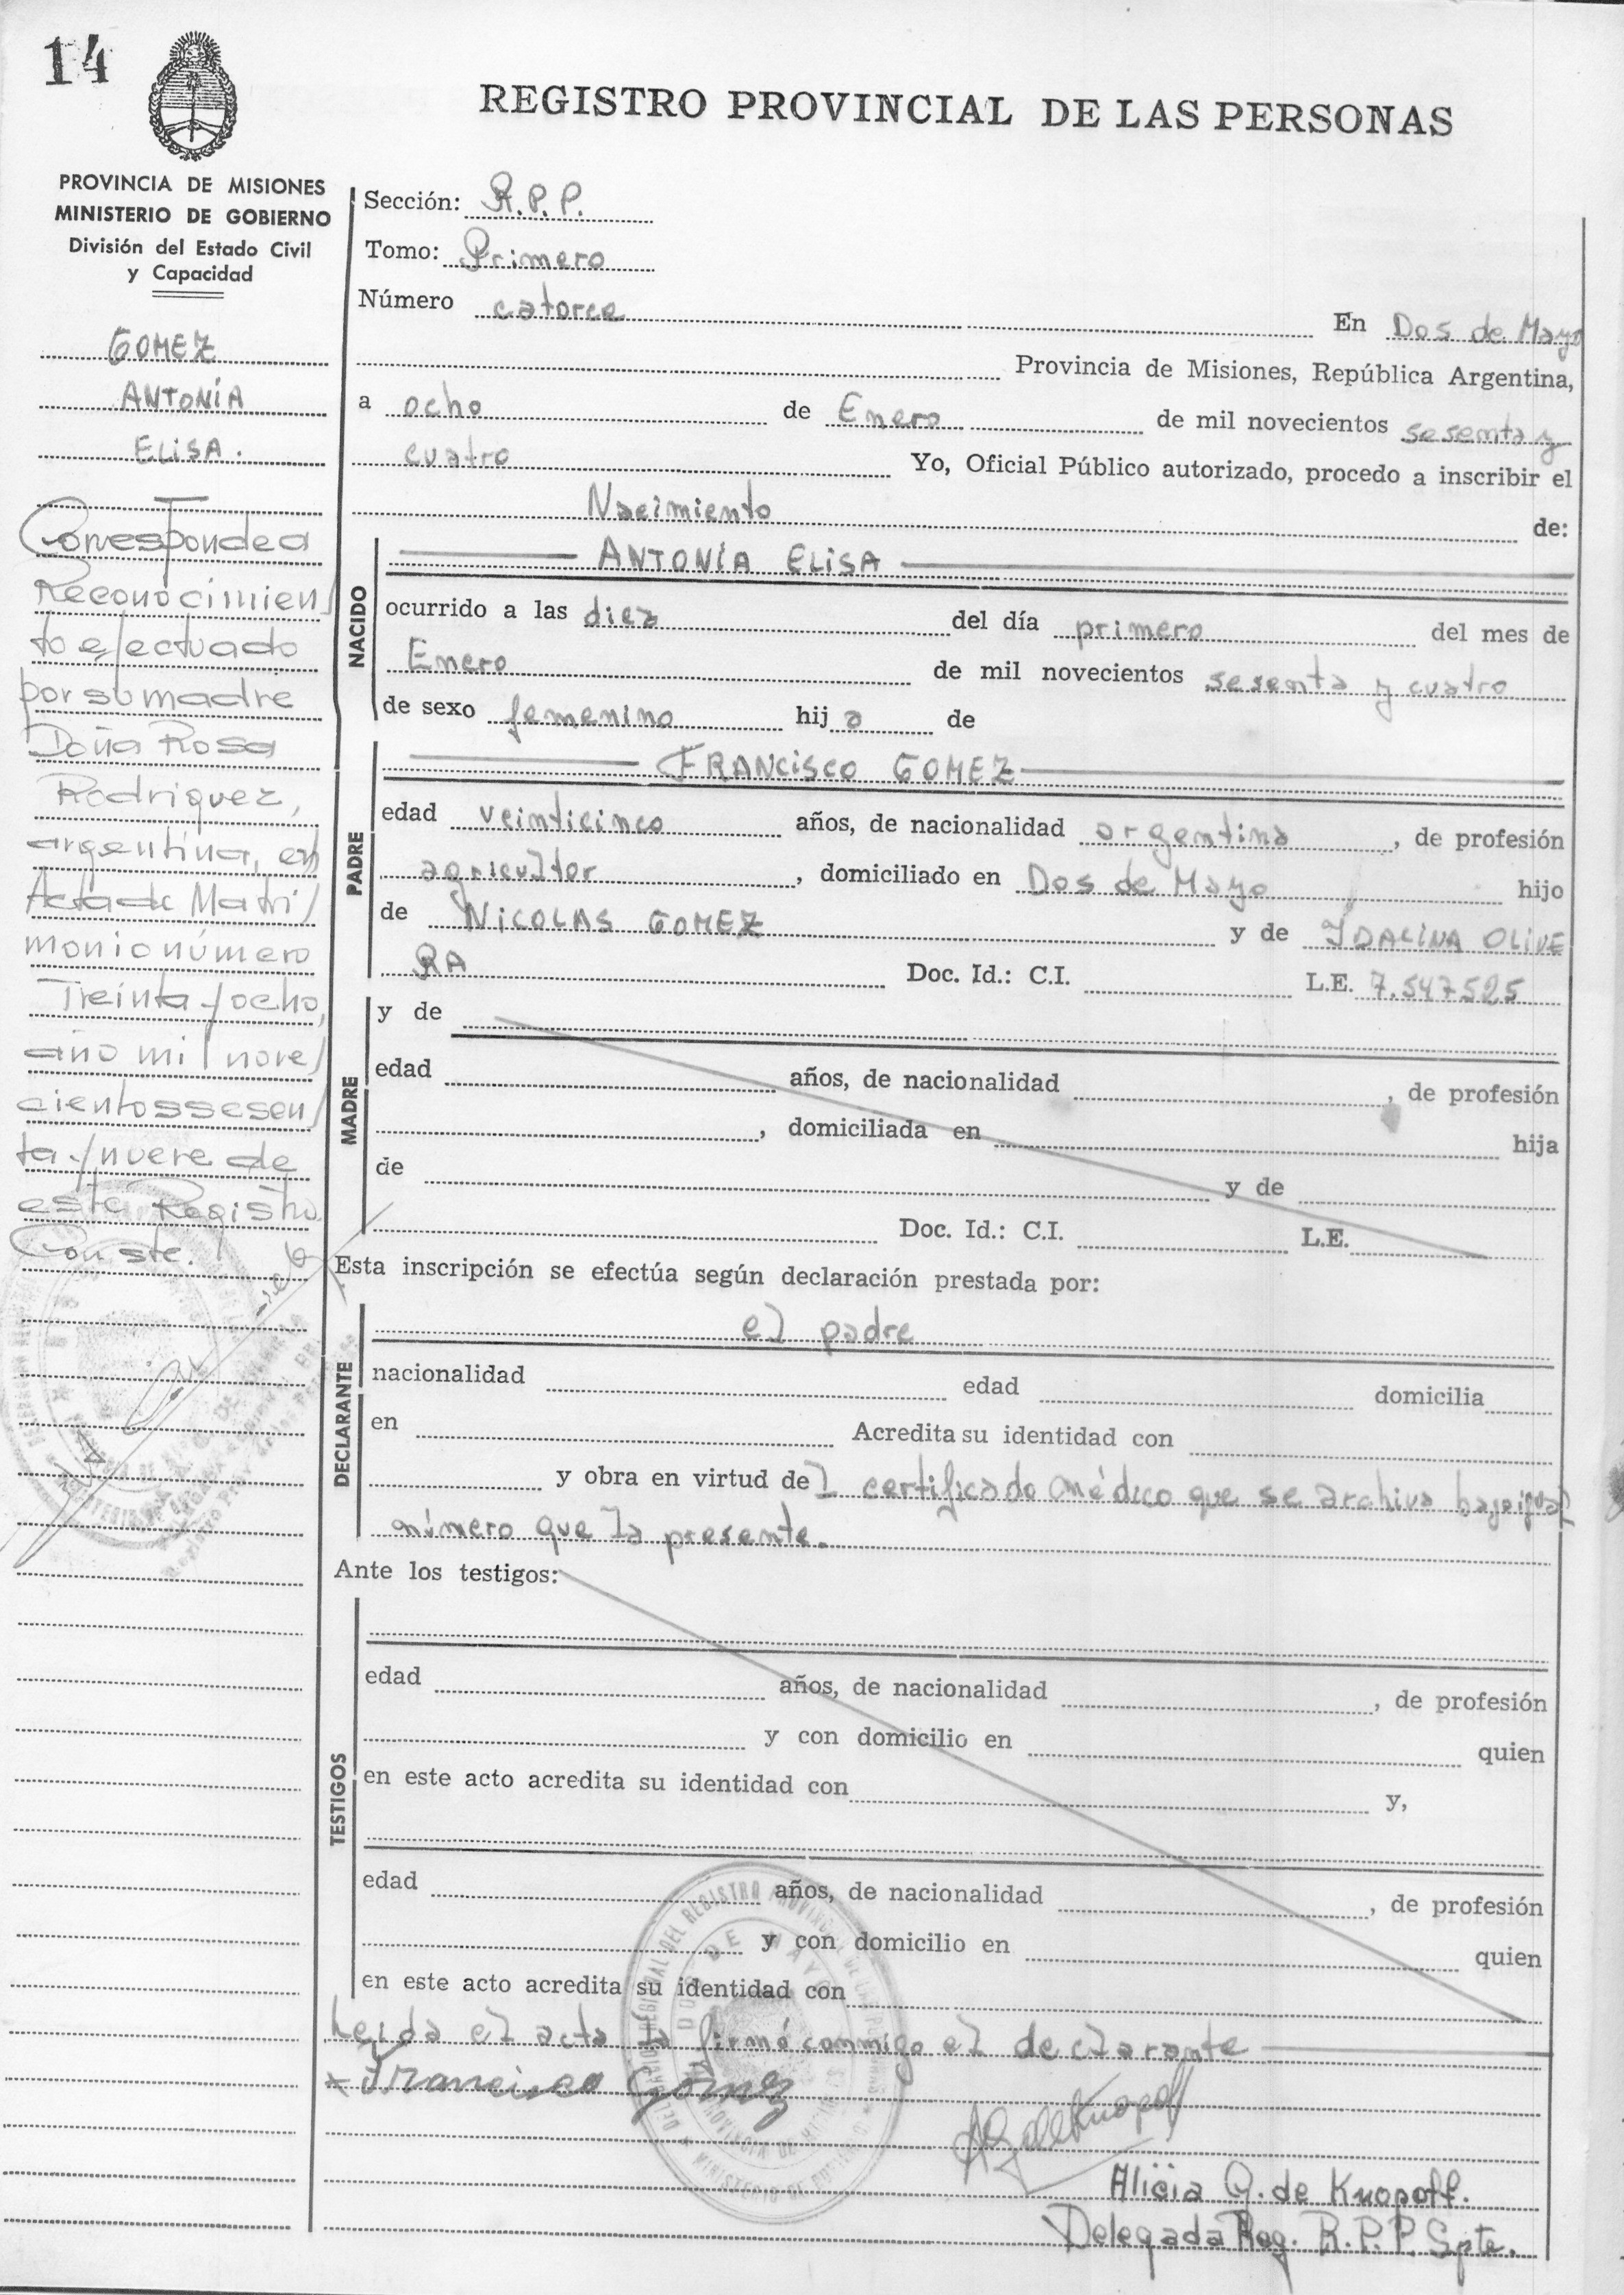 14
REGISTRO PROVINCIAL DE LAS PERSONAS
PROVINCIA DE MISIONES
MINISTERIO DE GOBIERNO
División del Estado Civil
y Capacidad
GOMEZ
ANTONÍA
ELISA.
Corresponde a
Reconocimien/
to efectuado
por su madre
Doña Rosa
Rodriguez,
argentina, en
Acta de Matri/
monio número
Treinta y ocho,
año mil nove/
cientos sesen/
ta y nueve de
este Registro.
Conste.
Sección: R.P.P.
Tomo: Primero
Número catorce En Dos de Mayo
Provincia de Misiones, República Argentina,
a ocho de Enero de mil novecientos sesenta y
cuatro Yo, Oficial Público autorizado, procedo a inscribir el
Nacimiento de:
NACIDO
ANTONÍA ELISA
ocurrido a las diez del día primero del mes de
Enero de mil novecientos sesenta y cuatro
de sexo femenino hij a de
PADRE
FRANCISCO GOMEZ
edad veinticinco años, de nacionalidad argentina, de profesión
agricultor, domiciliado en Dos de Mayo hijo
de NICOLAS GOMEZ y de YDALINA OLIVE
RA Doc. Id.: C.I. L.E. 7.547525
MADRE
y de
edad años, de nacionalidad , de profesión
, domiciliada en hija
de y de
Doc. Id.: C.I. L.E.
Esta inscripción se efectúa según declaración prestada por:
DECLARANTE
el padre
nacionalidad edad domicilia
en Acredita su identidad con
y obra en virtud de l certificado médico que se archiva bajo igual
número que la presente.
Ante los testigos:
TESTIGOS
edad años, de nacionalidad , de profesión
y con domicilio en quien
en este acto acredita su identidad con y,
edad años, de nacionalidad , de profesión
y con domicilio en quien
en este acto acredita su identidad con
Leída el acta la firmó conmigo el declarante
x Francisco Gomez
Alicia G. de Knopoff.
Delegada Reg. R.P.P. Spte.
DOS DE MAYO